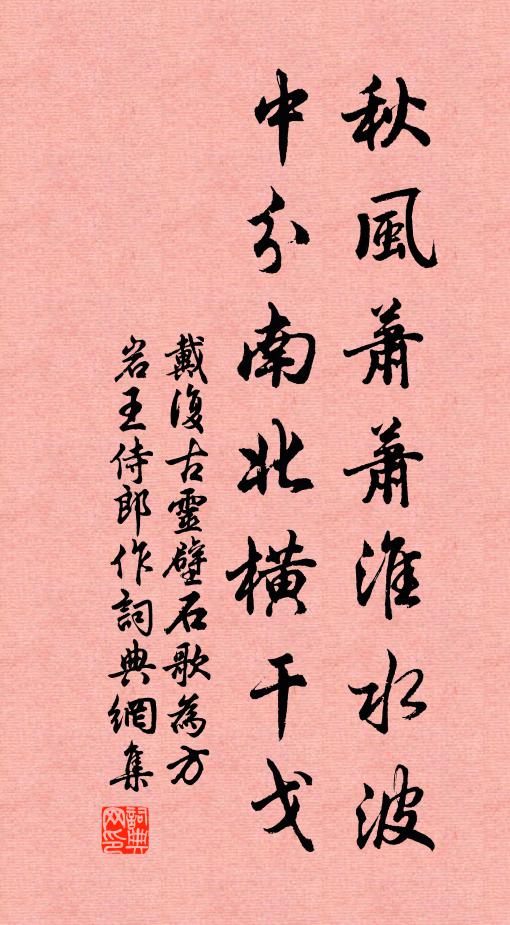 秋風蕭蕭淮水波
中分南北橫干戈
戴復古靈壁石歌為方
岩王侍郎作詞典網集
詞典网印